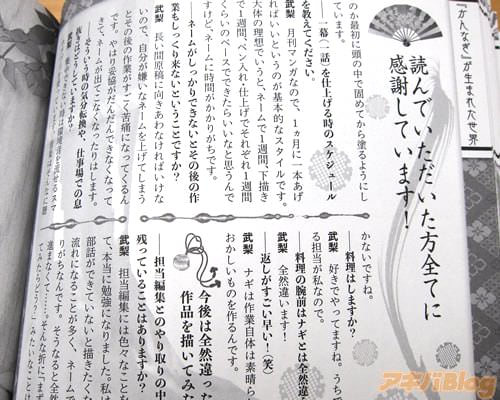 「かんなぎ」が生まれた世界
読んでいただいた方全てに
感謝しています！
のか最初に頭の中で固めてから塗るようにし
ています。
――一幕（一話）を仕上げる時のスケジュール
を教えてください。
武梨　月刊マンガなので、1ヵ月に一本あげ
ればいいというのが基本的なスタイルです。
大体の理想でいうと、ネームで1週間、下描き
で1週間、ペン入れ・仕上げでそれぞれ1週間
くらいのペースでできたらいいなと思うんで
すけど、ネームに時間がかかりがちです。
――ネームがしっかりできないとその後の作
業もしっくり来ないということですか？
武梨　長い間原稿に向きあわなければいけな
いので、自分が嫌いなネームを上げてしまう
とその後の作業がすごく苦痛になってくるん
です。やはり妥協がだんだんできなくなって
きて、ネームが出てこなくなったりはします。
――そういう時の気分転換や、仕事場での息
抜きはどうしていますか？
武梨　集中できない時は環境音を流せるスマ
かないですね。
――料理はしますか？
武梨　好きでやってますね。うちで
る担当が私なので。
――料理の腕前はナギとは全然違
武梨　全然違います！
――返しがすごい早い！（笑）
武梨　ナギは作業自体は素晴ら
おかしいものを作るんです。
今後は全然違った
作品を描いてみた
――担当編集とのやり取りの中
残っていることはありますか？
武梨　担当編集には色々なことを
て、本当に勉強になりました。私は
部話ができていないと描きたくな
流れになることが多く、ネームで
りがちなんです。そうなると全然
進まなくて……。そんな折に「まず
てみたらどう？」みたいなことは
アキバBlog